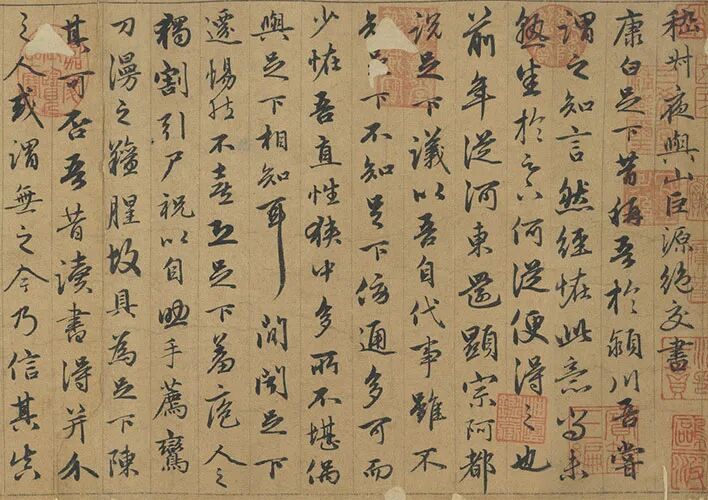 嵇叔夜與山巨源絕交書
康白足下昔稱吾於潁川吾嘗
謂之知言然經怪此意尚未
熟悉於足下何從便得之也
前年從河東還顯宗阿都
說足下議以吾自代事雖不
知足下不知足下傍通多可而
少怪吾直性狹中多所不堪偶
與足下相知耳間聞足下
遷惕然不喜恐足下羞庖人之
獨割引尸祝以自助手薦鸞
刀漫之羶腥故具為足下陳
其可否吾昔讀書得并介
之人或謂無之今乃信其真